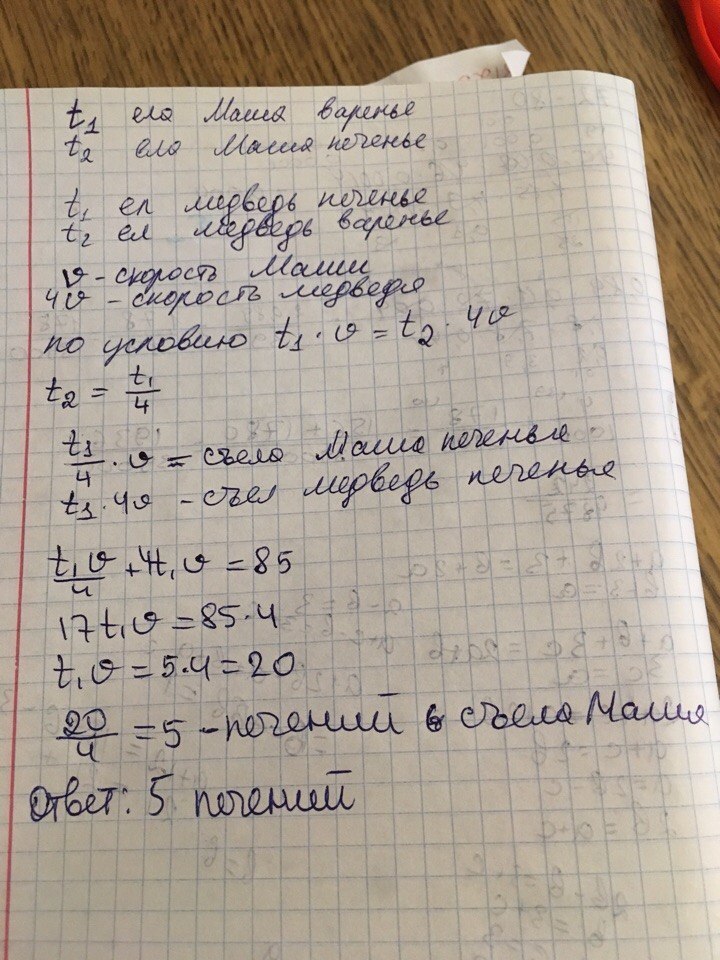 t₁ ела Маша варенье
t₂ ела Маша печенье
t₁ ел медведь печенье
t₂ ел медведь варенье
v - скорость Маши
4v - скорость медведя
по условию t₁ · v = t₂ · 4v
t₂ = t₁/4
t₁/4 · v = съела Маша печенья
t₁ · 4v - съел медведь печенья
t₁v/4 + 4t₁v = 85
17t₁v = 85·4
t₁v = 5·4 = 20
20/4 = 5 - печений съела Маша
Ответ: 5 печений